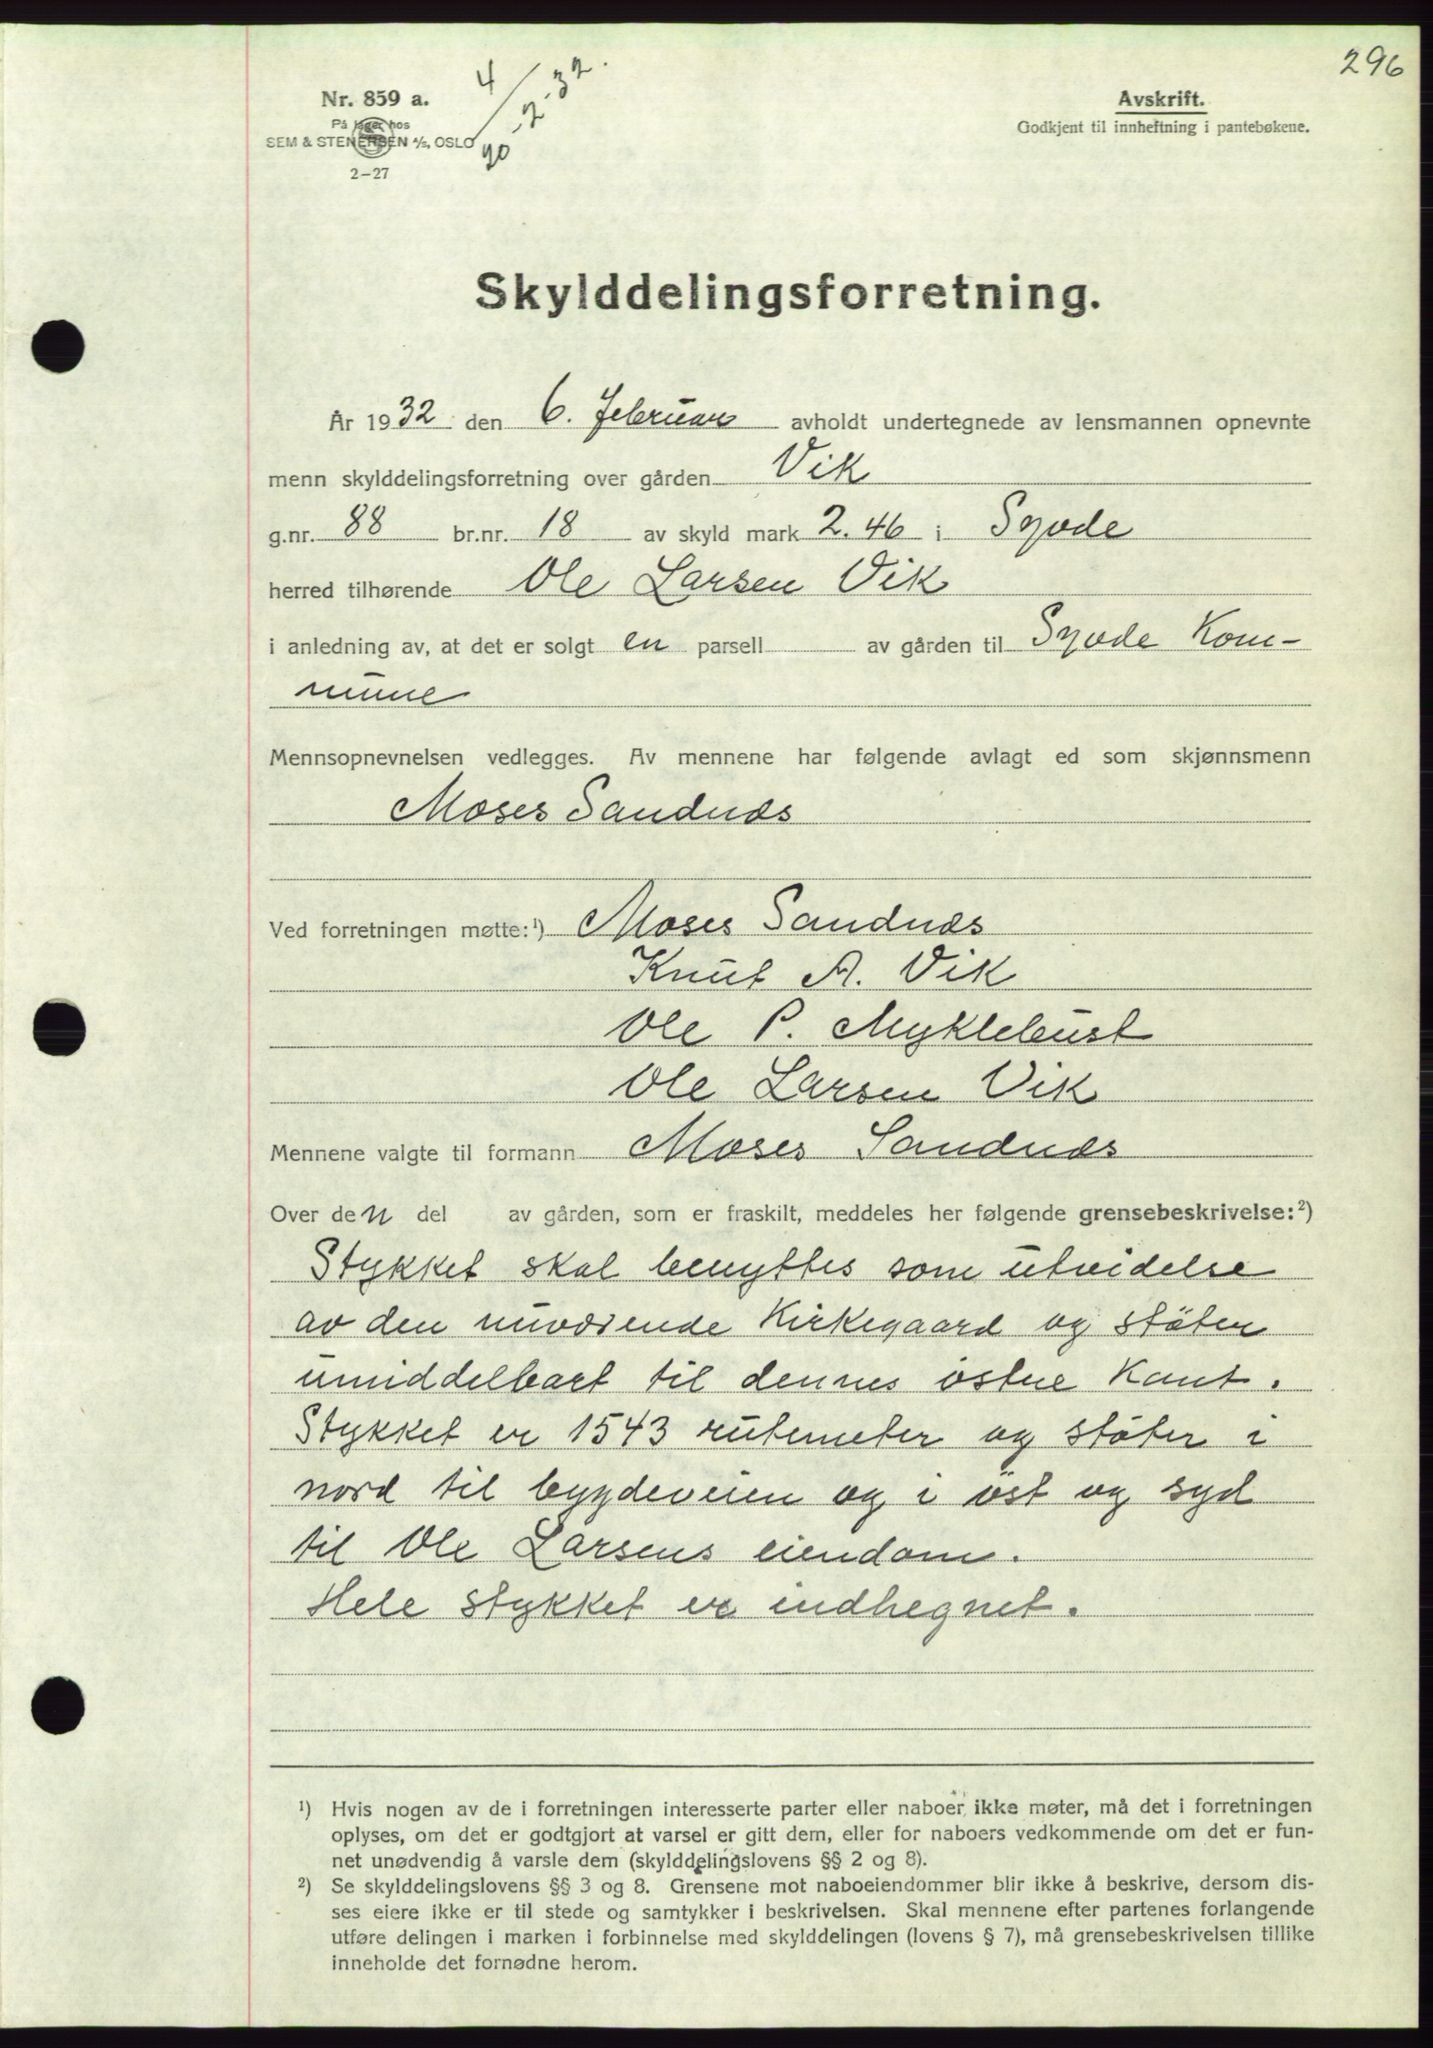 296
4/20-2-32.
Nr. 859 a.
På lager hos
SEM & STENERSEN A/S, OSLO
2-27
Avskrift.
Godkjent til innheftning i pantebøkene.
Skylddelingsforretning.
År 1932 den 6. Februar avholdt undertegnede av lensmannen opnevnte
menn skylddelingsforretning over gården Vik
g.nr. 88 br.nr. 18 av skyld mark 2.46 i Syvde
herred tilhørende Ole Larsen Vik
i anledning av, at det er solgt en parsell av gården til Syvde Kom-
mune
Mennsopnevnelsen vedlegges. Av mennene har følgende avlagt ed som skjønnsmenn
Moses Sandnæs
Ved forretningen møtte:¹) Moses Sandnæs
Knut A. Vik
Ole P. Myklebust
Ole Larsen Vik
Mennene valgte til formann Moses Sandnæs
Over den del av gården, som er fraskilt, meddeles her følgende grensebeskrivelse:²)
Stykket skal benyttes som utvidelse
av den nuværende Kirkegaard og støter
umiddelbart til dennes østre Kant.
Stykket er 1543 rutemeter og støter i
nord til bygdeveien og i øst og syd
til Ole Larsens eiendom.
Hele stykket er indhegnet.
¹) Hvis nogen av de i forretningen interesserte parter eller naboer ikke møter, må det i forretningen
oplyses, om det er godtgjort at varsel er gitt dem, eller for naboers vedkommende om det er fun-
net unødvendig å varsle dem (skylddelingslovens §§ 2 og 8).
²) Se skylddelingslovens §§ 3 og 8. Grensene mot naboeiendommer blir ikke å beskrive, dersom dis-
ses eiere ikke er til stede og samtykker i beskrivelsen. Skal mennene efter partenes forlangende
utføre delingen i marken i forbinnelse med skylddelingen (lovens § 7), må grensebeskrivelsen tillike
inneholde det fornødne herom.